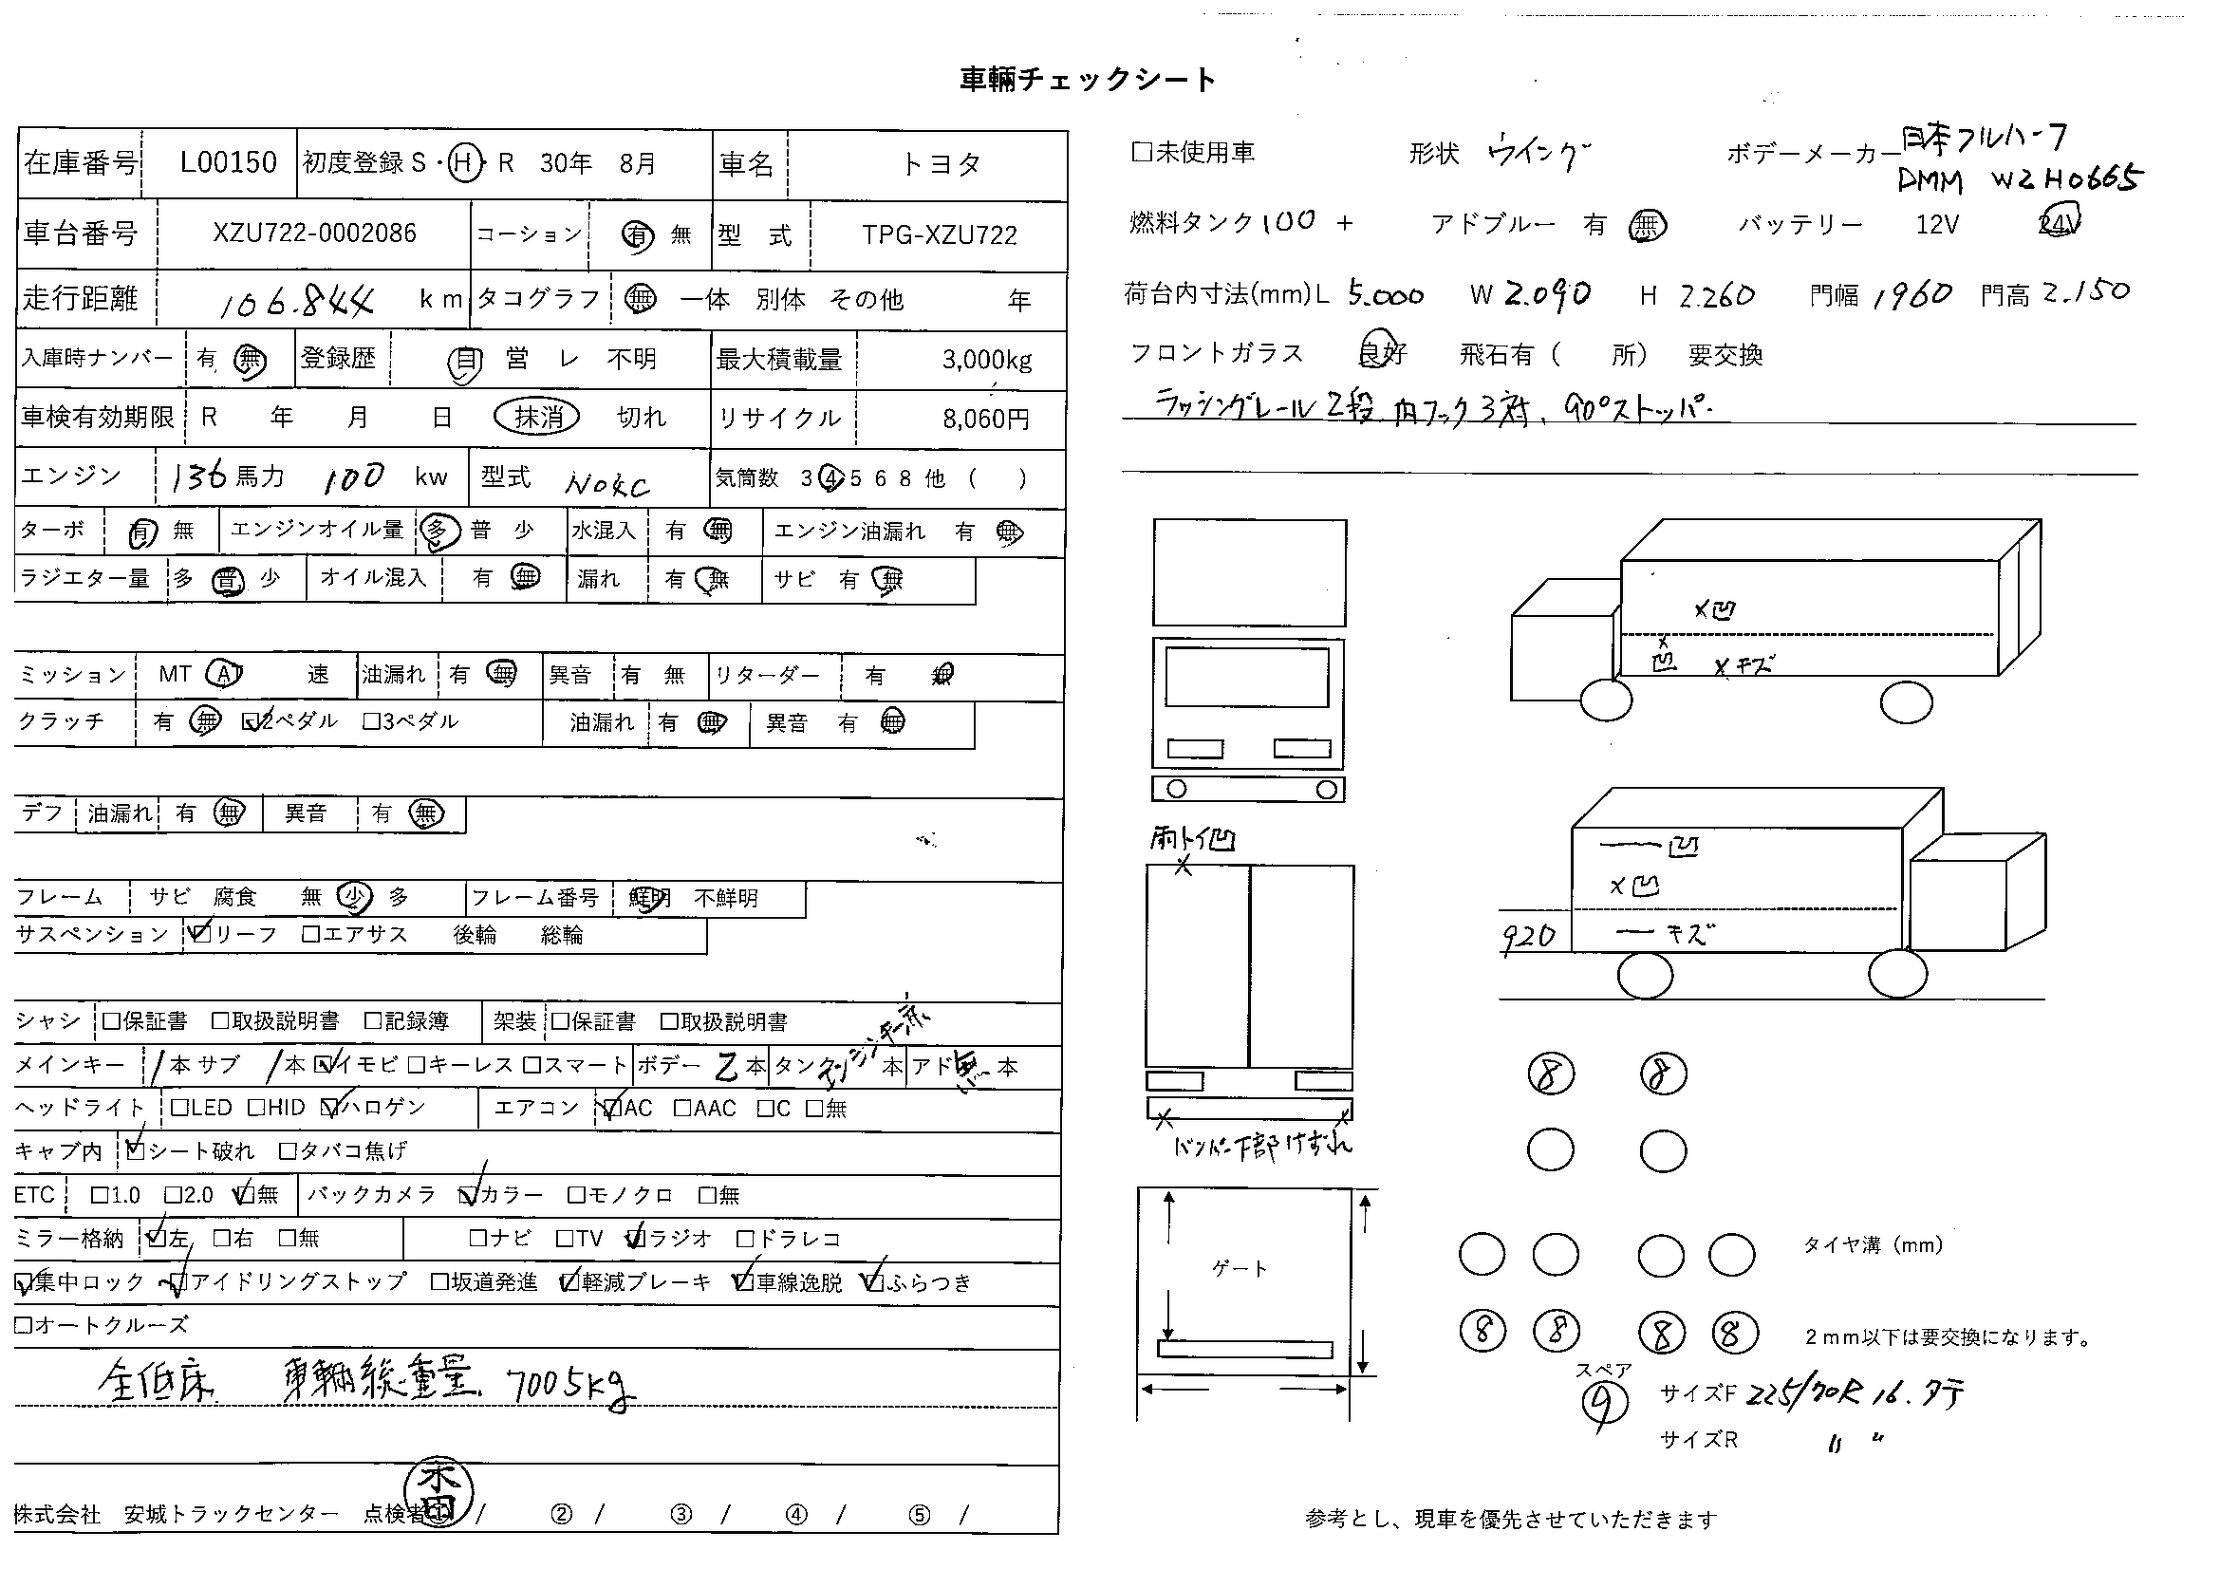 車輌チェックシート
在庫番号 L00150 初度登録 S・H・R 30年 8月 車名 トヨタ
車台番号 XZU722-0002086 コーション 有 無 型 式 TPG-XZU722
走行距離 106.844 km タコグラフ 無 一体 別体 その他 年
入庫時ナンバー 有 無 登録歴 自 営 レ 不明 最大積載量 3,000kg
車検有効期限 R 年 月 日 抹消 切れ リサイクル 8,060円
エンジン 136馬力 100 kw 型式 N04C 気筒数 3 4 5 6 8 他 ( )
ターボ 有 無 エンジンオイル量 多 普 少 水混入 有 無 エンジン油漏れ 有 無
ラジエター量 多 普 少 オイル混入 有 無 漏れ 有 無 サビ 有 無
ミッション MT AT 速 油漏れ 有 無 異音 有 無 リターダー 有 無
クラッチ 有 無 ☑2ペダル □3ペダル 油漏れ 有 無 異音 有 無
デフ 油漏れ 有 無 異音 有 無
フレーム サビ 腐食 無 少 多 フレーム番号 鮮明 不鮮明
サスペンション ☑リーフ □エアサス 後輪 総輪
シャシ □保証書 □取扱説明書 □記録簿 架装 □保証書 □取扱説明書
メインキー 1本 サブ 1本 ☑イモビ □キーレス □スマート ボデー 2本 タンク エンジンキー共 本 アド 無 本
ヘッドライト □LED □HID ☑ハロゲン エアコン ☑AC □AAC □C □無
キャブ内 ☑シート破れ □タバコ焦げ
ETC □1.0 □2.0 ☑無 バックカメラ ☑カラー □モノクロ □無
ミラー格納 ☑左 □右 □無 □ナビ □TV ☑ラジオ □ドラレコ
☑集中ロック ☑アイドリングストップ □坂道発進 ☑軽減ブレーキ ☑車線逸脱 ☑ふらつき
□オートクルーズ
全低床 車輌総重量 7005kg
株式会社 安城トラックセンター 点検者① / ② / ③ / ④ / ⑤ /
□未使用車 形状 ウイング ボデーメーカー 日本フルハーフ
DMM W2H0665
燃料タンク 100 + アドブルー 有 無 バッテリー 12V 24V
荷台内寸法(mm) L 5.000 W 2.090 H 2.260 門幅 1960 門高 2.150
フロントガラス 良好 飛石有 ( 所) 要交換
ラッシングレール2段 内フック3対、90°ストッパー
×凹
×凹 ×キズ
雨トイ凹
×
凹
×凹
920 キズ
× ×
バンパー下部けずれ
ゲート
8 8
タイヤ溝（mm）
8 8 8 8 2mm以下は要交換になります。
スペア
9 サイズF 225/70R 16. タテ
サイズR 〃 〃
参考とし、現車を優先させていただきます